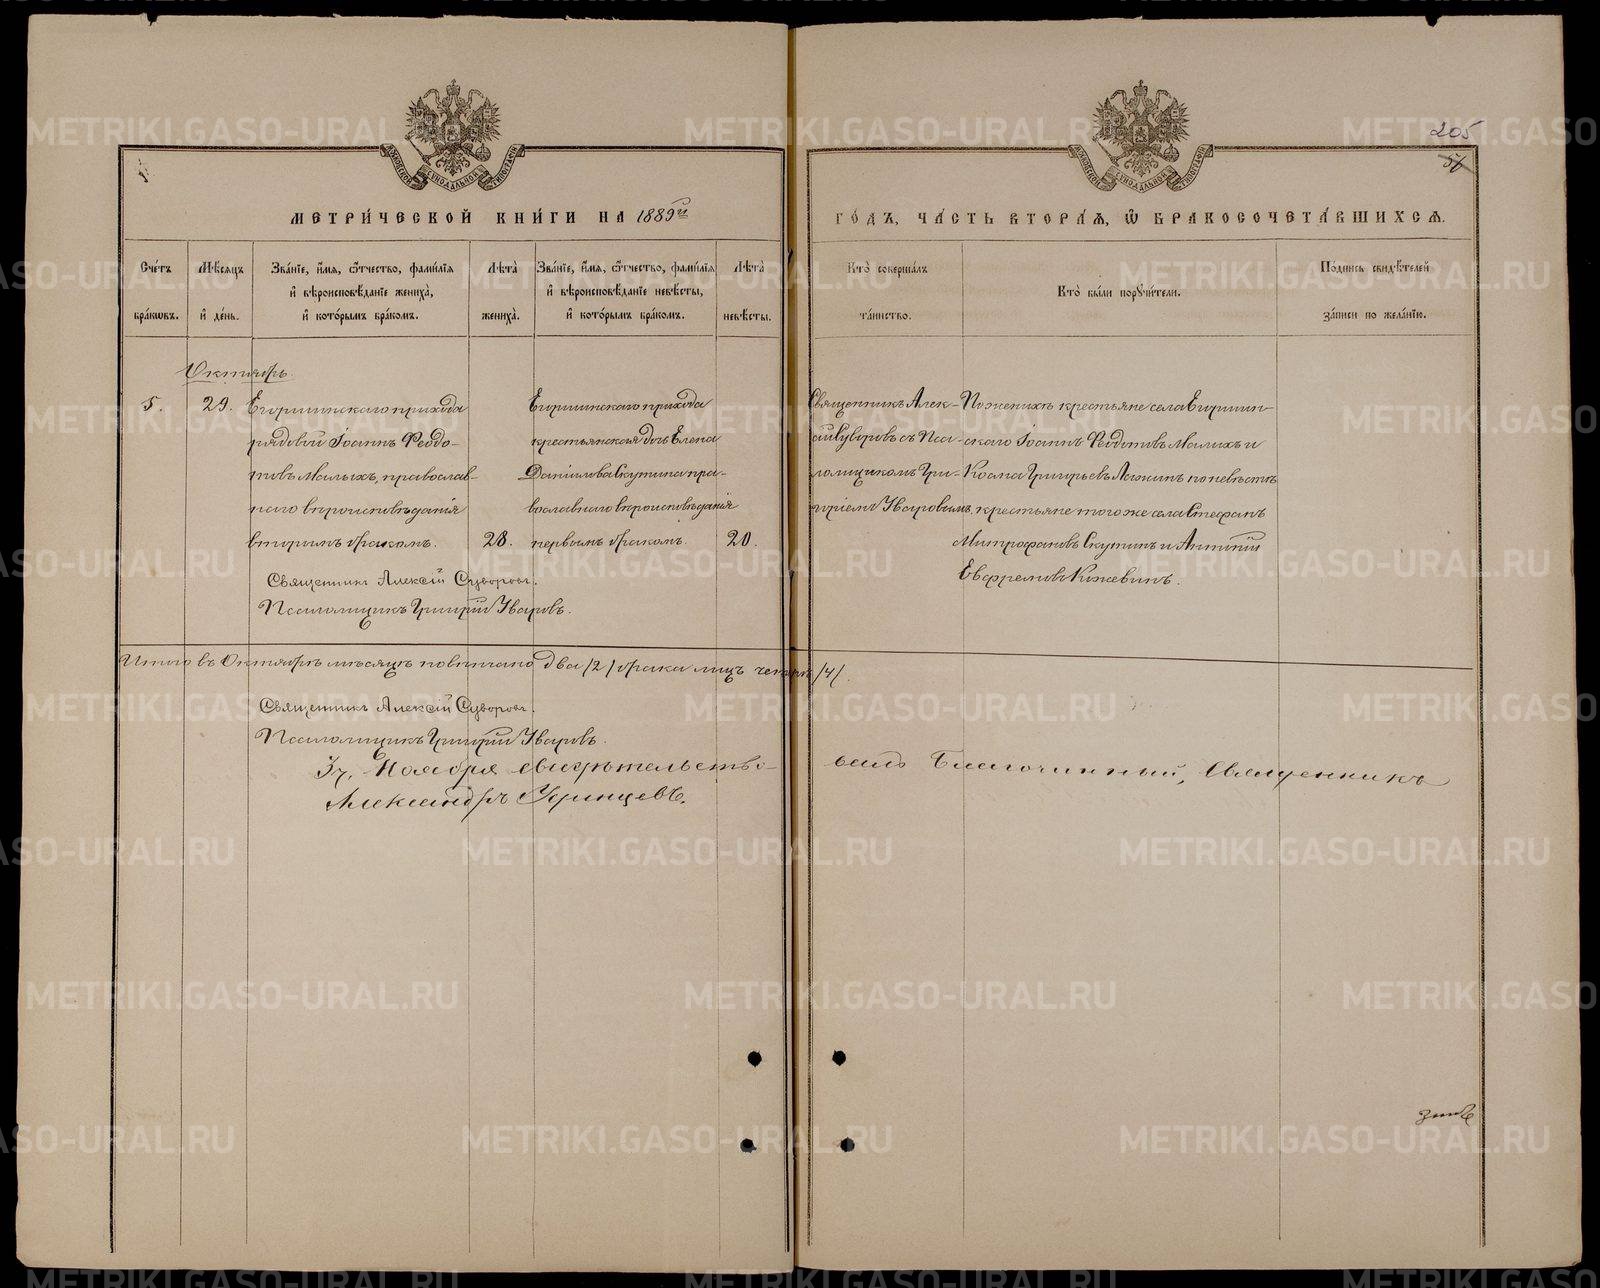 205
56
МЕТРИ́ЧЕСКОЙ КНИ́ГИ НА 1889й ГО́ДЪ, ЧА́СТЬ ВТОРА́Ѧ, Ѽ БРАКОСОЧЕТА́ВШИХСѦ.
Сче́тъ бра́кѡвъ.
Мѣ́сѧцъ и҆ де́нь.
Зва́нїе, и҆́мѧ, ѻ҆́тчество, фами́лїѧ
и҆ вѣроисповѣ́данїе жениха̀,
и҆ кото́рымъ бра́комъ.
Лѣ́та жениха̀.
Зва́нїе, и҆́мѧ, ѻ҆́тчество, фами́лїѧ
и҆ вѣроисповѣ́данїе невѣ́сты,
и҆ кото́рымъ бра́комъ.
Лѣ́та невѣ́сты.
Кто̀ соверша́лъ та́инство.
Кто̀ бы́ли порꙋчи́тели.
По́дпись свидѣ́телей за́писи по жела́нїю.
Октябрь.
5.
29.
Егоршинскаго прихода
рядовой Іоаннъ Феодо-
товъ Малыхъ, православ-
наго вѣроисповѣданія
вторымъ бракомъ.
28.
Егоршинскаго прихода
крестьянская дочь Елена
Даніилова Скутина пра-
вославнаго вѣроисповѣданія
первымъ бракомъ.
20.
Священникъ Алек-
сій Суворовъ съ Пса-
ломщикомъ Гри-
горіемъ Уваровымъ.
По женихѣ крестьяне села Егоршин-
скаго Іоаннъ Феодотовъ Малыхъ и
Косма Григорьевъ по невѣстѣ
крестьяне того же села Стефанъ
Митрофановъ Скутинъ и
Евфремовъ Кожевинъ.
Священникъ Алексій Суворовъ.
Псаломщикъ Григорій Уваровъ.
Итого въ Октябрѣ мѣсяцѣ повѣнчано два /2/ брака лицъ четыре /4/.
Священникъ Алексій Суворовъ.
Псаломщикъ Григорій Уваровъ.
Ноября свидѣтельство-
валъ Благочинный, Священникъ
Александръ
METRIKI.GASO-URAL.RU